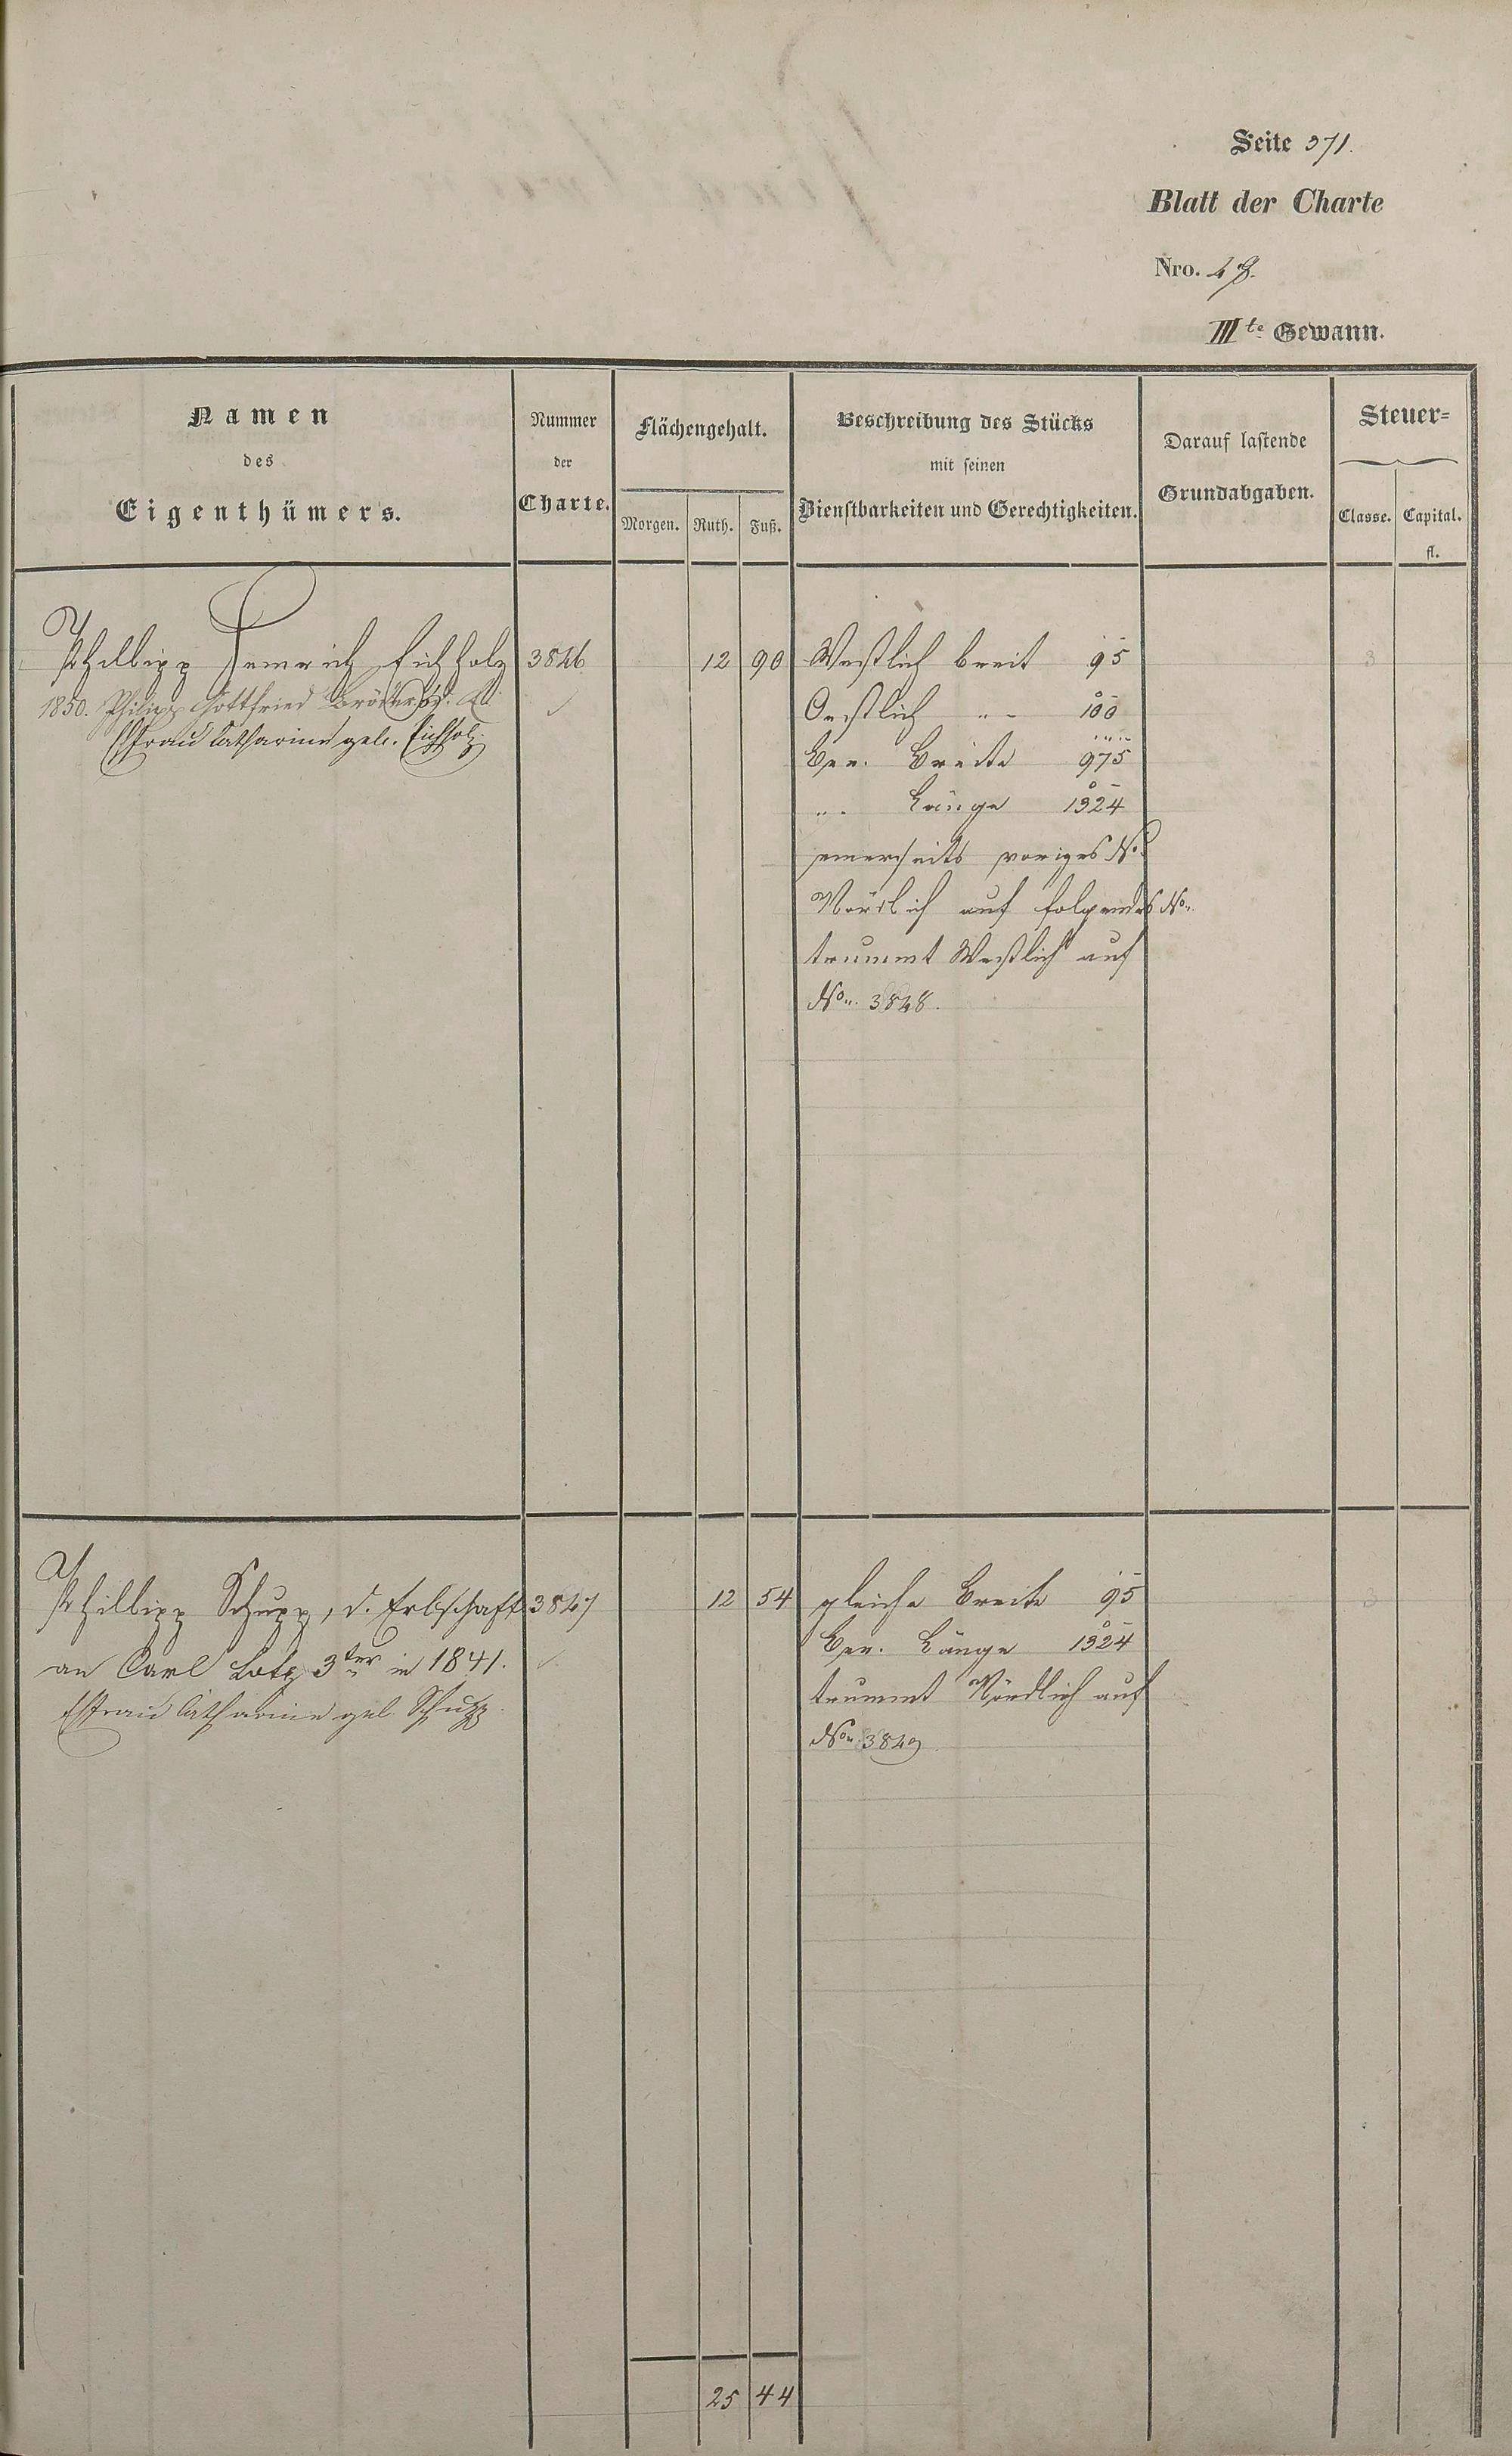 Seite 371.
Blatt der Charte
Nro. 48.
III te Gewann.
Namen
des
Eigenthümers.
Nummer
der
Charte.
Flächengehalt.
Morgen. Ruth. Fuß.
Beschreibung des Stücks
mit seinen
Dienstbarkeiten und Gerechtigkeiten.
Darauf lastende
Grundabgaben.
Steuer=
Classe. Capital.
fl.
Phillipp Henrich Eichholz 3846 12 90 Westlich breit 95 3
1850. Philipp Gottfried
Ehfrau Catharine geb. Eichholz
Oestlich " 100
Ger. Breite 975
" Länge 1324
einerseits voriges No.
Nördlich auf folgendes No.
trummt Westlich auf
No. 3848.
Phillipp Schupp, d. Erbschaft 3847 12 54 gleiche Breite 95 3
an Carl Lotz 3ter in 1841.
Ehfrau Catharine geb Schupp
Ger. Länge 1324
trummt Nördlich auf
No. 3849
25 44